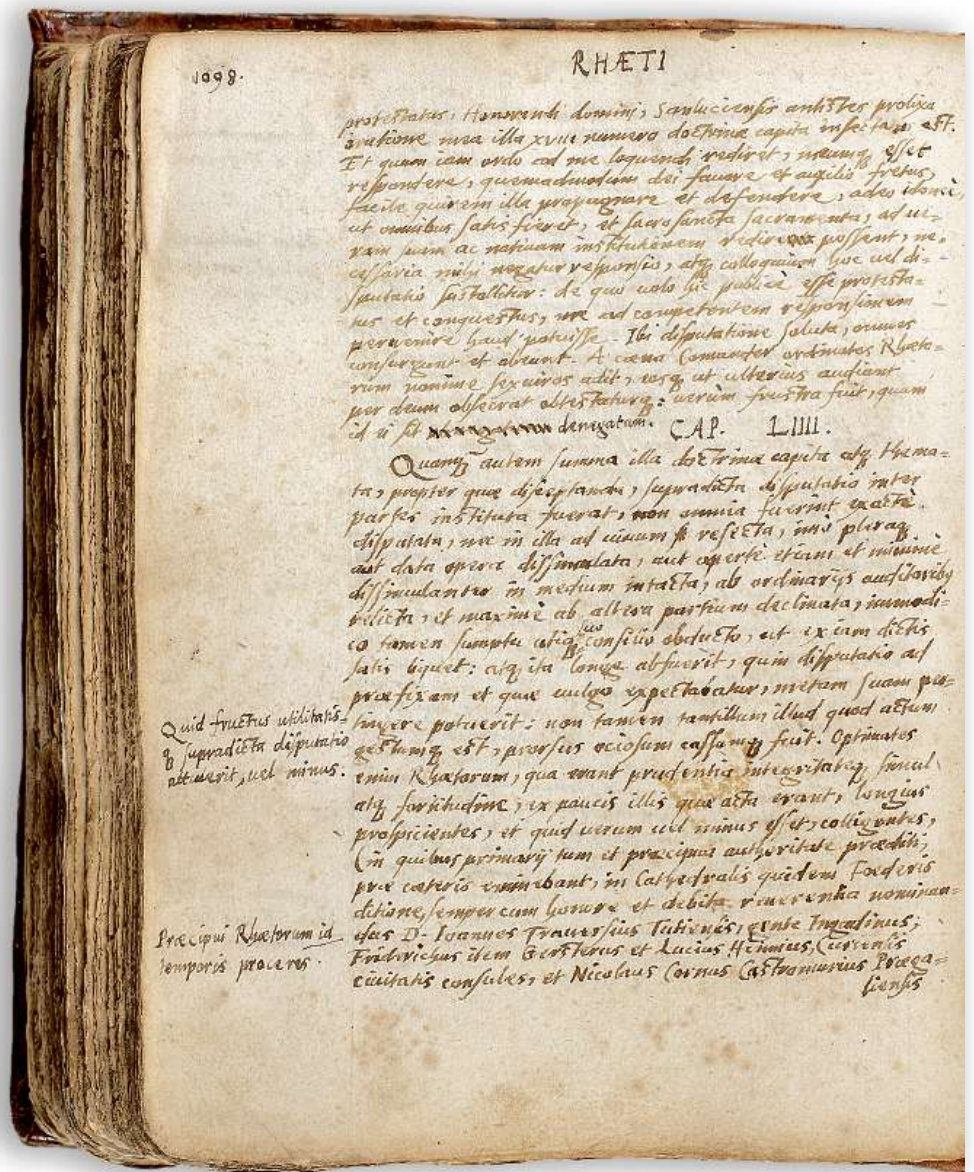 1098.
RHÆTI
protestatus, Honorandi domini, Sanluciensis antistes prolixa
oratione mea illa xviii numero doctrinæ capita insectatus est.
Et quum iam ordo ad me loquendi rediret, meumq esset
respondere, quemadmodum dei favore et auxilio fretus,
facile quirem illa propugnare et defendere, adeo
ut omnibus satis fieret, et sacrosancta sacramenta, ad ue=
ram suam ac natiuam institutionem redire possent, ne=
cessaria mihi negatur responsio, atq colloquium hoc uel di=
sputatio sustollitur: de quo uolo hic publicè esse protesta=
tus et conquestus, me ad competentem responsionem
peruenire haud potuisse. Ibi disputatione soluta, omnes
consurgunt et abeunt. A cœna Comander ordinatos Rhæto=
rum nomine sexuiros adit, eosq ut ulterius audiant
per deum obsecrat obtestaturq: uerùm frustra fuit, quum
id ei sit denegatum. CAP. LIIII.
Quanq autem summa illa doctrinæ capita atq thema=
ta, propter quæ disceptanda, supradicta disputatio inter
partes instituta fuerat, non omnia fuerint exactè
disputata, nec in illa ad uiuum resecta, imò pleraq
aut data opera dissimulata, aut apertè etiam et minimè
dissimulanter in medium intacta, ab ordinarijs auditoribus
relicta, et maximè ab altera partium declinata, immodi=
co tamen sumptu atiq suo consilio obducto, ut ex iam dictis
satis liquet: atq ita longe abfuerit, quin disputatio ad
præfixam et quæ uulgo expectabatur, metam suam per=
tingere potuerit: non tamen tantillum illud quod actum
gestumq est, prorsus ociosum cassumq fuit. Optimates
enim Rhætorum, qua erant prudentia integritateq simul
atq fortitudine, ex paucis illis quæ acta erant, longius
prospicientes, et quid uerum uel minus esset, colligentes,
(in quibus primarij tum et præcipua authoritate præditi,
præ cæteris eminebant, in Cathedralis quidem Foederis
ditione, semper cum honore et debita reuerentia nominan=
dus D. Ioannes Trauersius Tutiensis, gente Ingadinus,
Fridrichus item Gersterus et Lucius Heinnius, Curiensis
ciuitatis consules, et Nicolaus Cornus Castromurius Præga=
liensis
Quid fructus utilitatis=
q supradicta disputatio
attulerit, uel minus.
Præcipui Rhætorum id
temporis proceres.